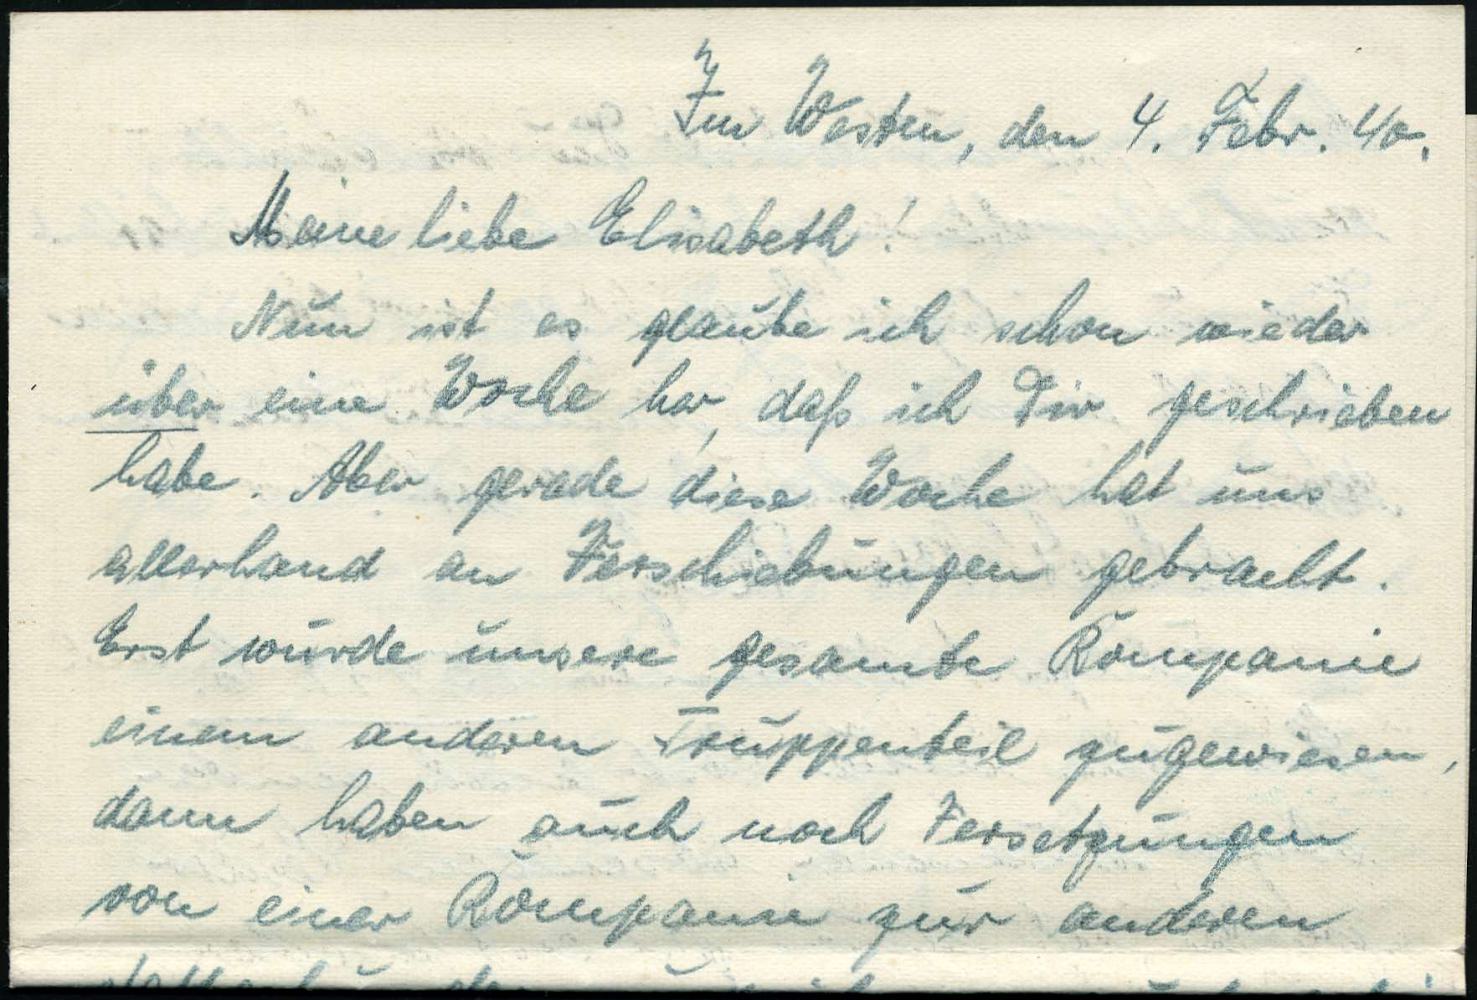 Im Westen, den 4. Febr. 40.
Meine liebe Elisabeth!
Nun ist es glaube ich schon wieder
über eine Woche her, daß ich Dir geschrieben
habe. Aber gerade diese Woche hat uns
allerhand an Verschiebungen gebracht.
Erst wurde unsere gesamte Kompanie
einem anderen Truppenteil zugewiesen,
dann haben auch noch Versetzungen
von einer Kompanie zur anderen